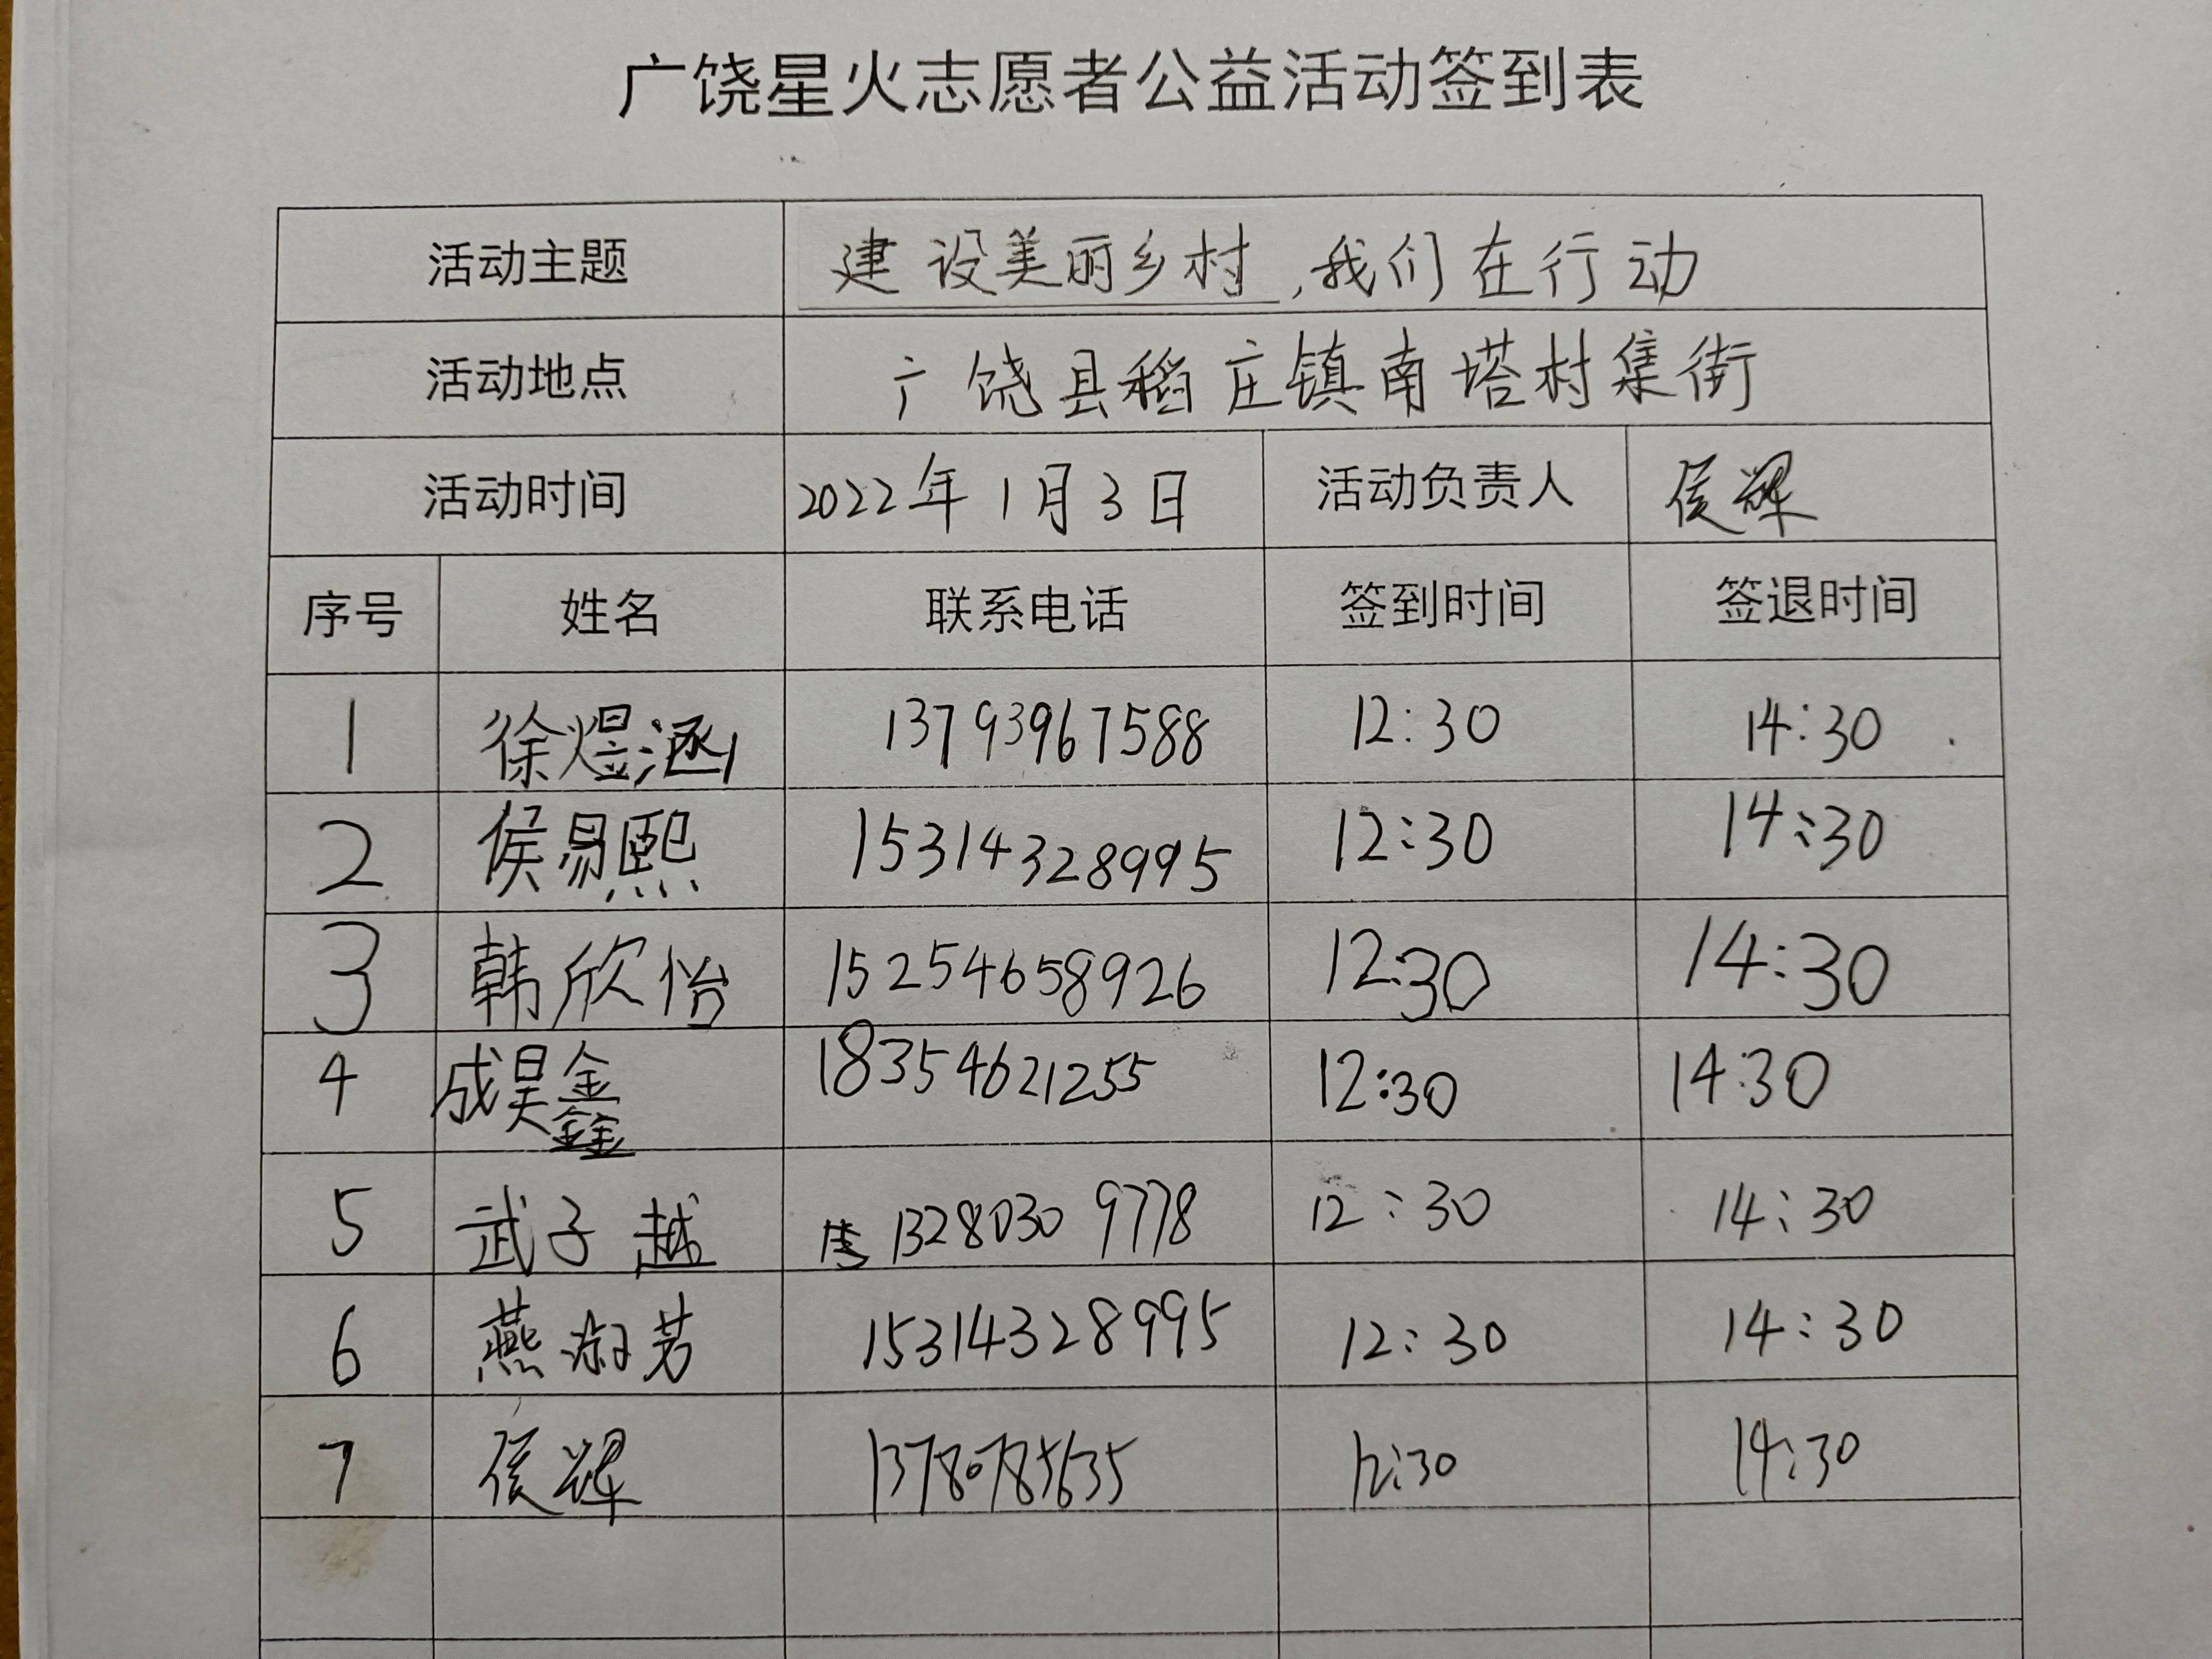 广饶星火志愿者公益活动签到表
活动主题 建设美丽乡村,我们在行动
活动地点 广饶县稻庄镇南塔村集街
活动时间 2022年1月3日 活动负责人 侯辉
序号 姓名 联系电话 签到时间 签退时间
1 徐煜涵 13793967588 12:30 14:30
2 侯易熙 15314328995 12:30 14:30
3 韩欣怡 15254658926 12:30 14:30
4 成昊鑫 18354621255 12:30 14:30
5 武子越 13280309778 12:30 14:30
6 燕淑芳 15314328995 12:30 14:30
7 侯辉 13780785635 12:30 14:30